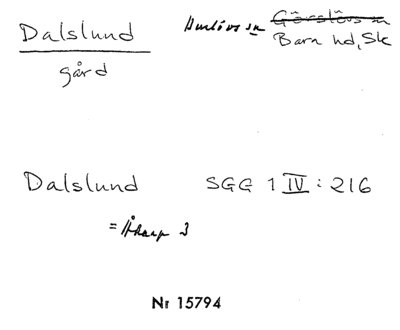 Dalslund
Hurlövs sn Görslövs sn
Bara hd, Sk
gård
Dalslund SGG 1 IV: 216
= Åkarp 3
Nr 15794